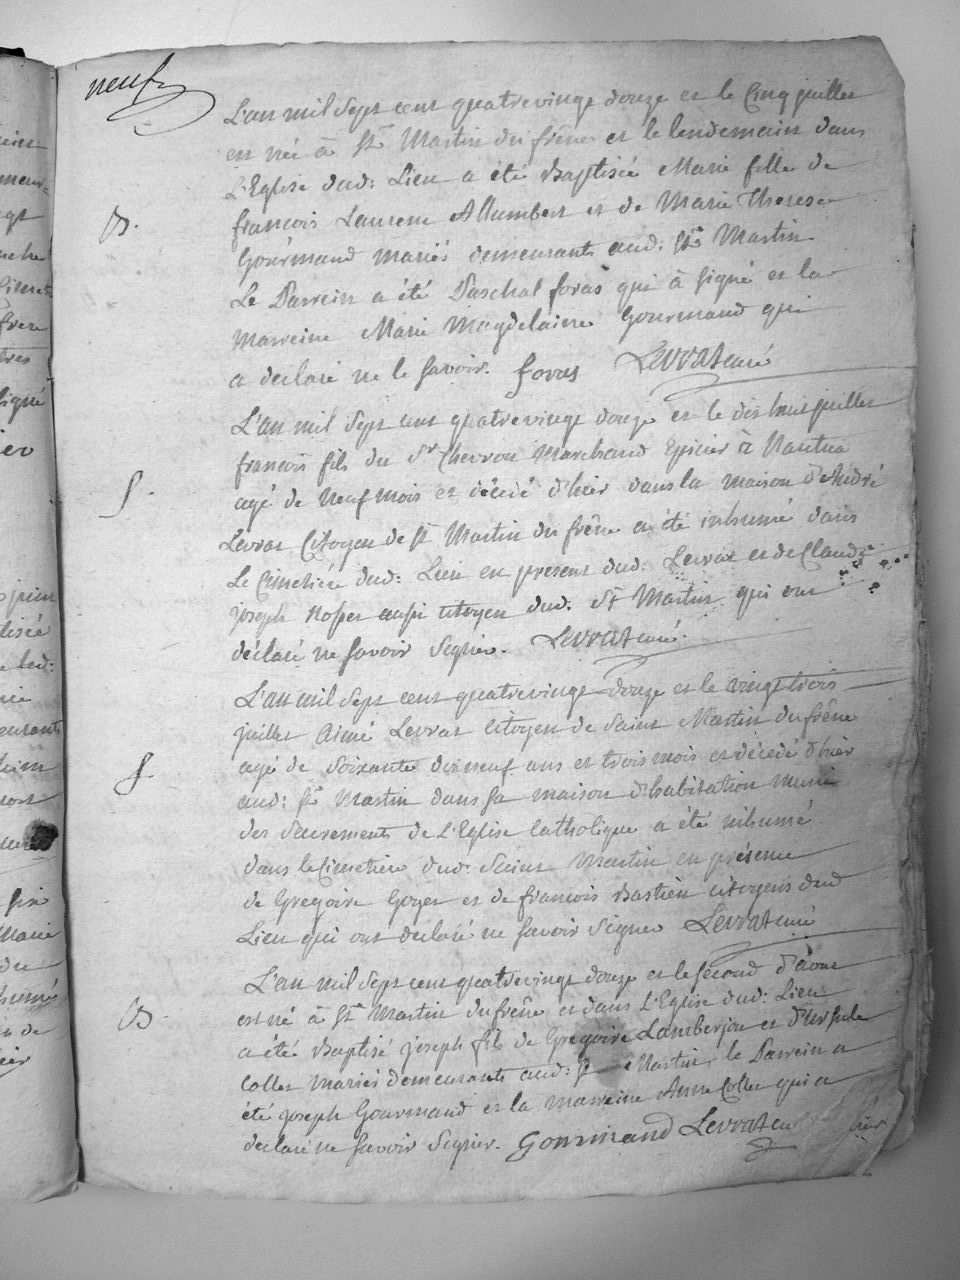 neuf
L'an mil Sept cent quatrevingt douze et le Cinq juillet
est née à St Martin du frêne et le lendemain dans
L'Eglise dud: Lieu a été Baptisée Marie fille de
B.
francois Laurent Allombert et de Marie Therese
Gourmand mariés demeurants aud: St Martin
Le Parrein a été Paschal foras qui à signé et la
marreine Marie Magdelaine Gourmand qui
a declaré ne le savoir. foras Levrat curé
L'an mil Sept cent quatrevingt douze et le dix huit juillet
francois fils du Sr Chevron Marchand Epicier à Nantua
S.
agé de neuf mois et décédé d'hier dans la maison d'André
Levrat Citoyen de St Martin du frêne a été inhumé dans
Le Cimetière dud: Lieu en present dud: Levrat et de Claude
joseph aussi citoyen dud. St Martin qui ont
déclaré ne savoir Signer. Levrat curé.
L'an mil Sept cent quatrevingt douze et le vingt trois
juillet Aimé Levrat citoyen de Saint Martin du frêne
S
agé de Soixante dixneuf ans et trois mois et décédé d'hier
aud: St Martin dans sa maison d'habitation muni
des Sacrements de L'Eglise Catholique a été inhumé
dans le Cimetière dud: Saint Martin en présence
de Gregoire Goyet et de francois Bastien citoyens dud
Lieu qui ont declaré ne savoir Signer Levrat curé
L'an mil Sept cent quatrevingt douze et le Second d'aout
B.
est né à St Martin du frêne et dans L'Eglise dud: Lieu
a été Baptisé joseph fils de Gregoire Lamberjon et d'ursule
Collet mariés demeurants aud: St Martin, le Parrein a
été joseph Gourmand et la marreine Anne Collet qui a
declaré ne savoir Signer. Gourmand Levrat curé